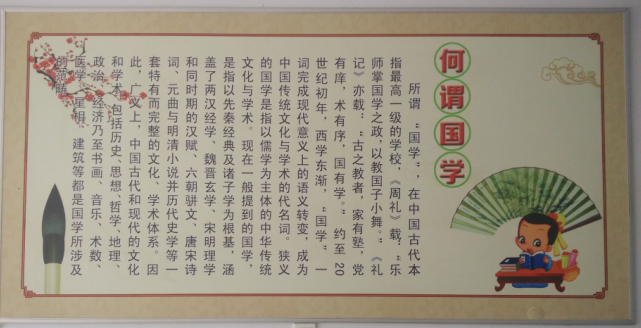 何谓国学
所谓“国学”，在中国古代本
指最高一级的学校，《周礼》载：“乐
师掌国学之政，以教国子小舞。”《礼
记》亦载：“古之教者，家有塾，党
有庠，术有序，国有学。”约至20
世纪初年，西学东渐，“国学”一
词完成现代意义上的语义转变，成为
中国传统文化与学术的代名词。狭义
的国学是指以儒学为主体的中华传统
文化与学术。现在一般提到的国学，
是指以先秦经典及诸子学为根基，涵
盖了两汉经学、魏晋玄学、宋明理学
和同时期的汉赋、六朝骈文、唐宋诗
词、元曲与明清小说并历代史学等一
套特有而完整的文化、学术体系。因
此，广义上，中国古代和现代的文化
和学术，包括历史、思想、哲学、地理、
政治、经济乃至书画、音乐、术数、
医学、星相、建筑等都是国学所涉及
的范畴。